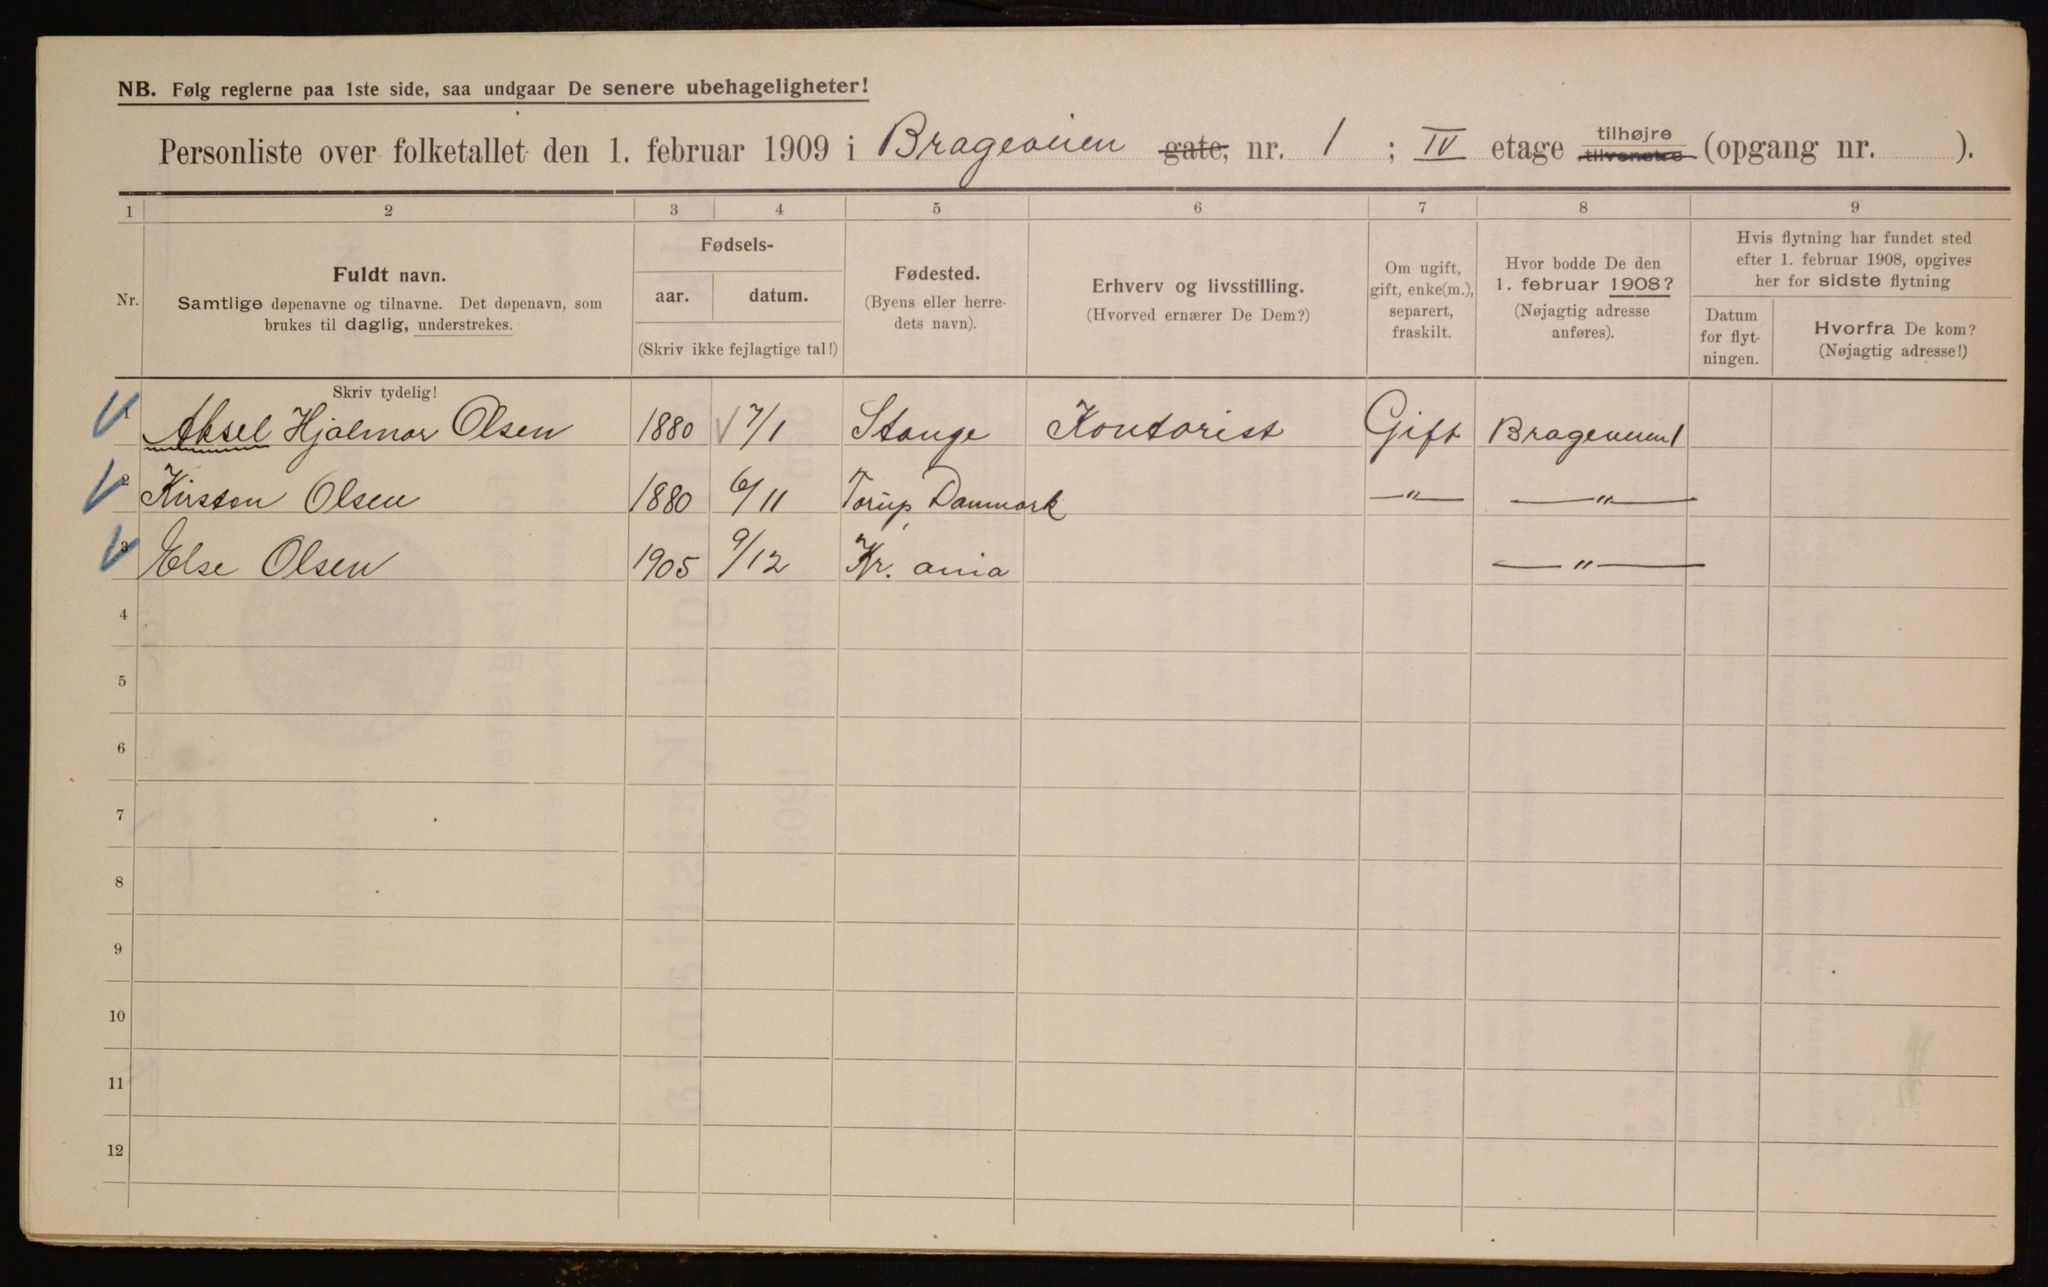 NB. Følg reglerne paa 1ste side, saa undgaar De senere ubehageligheter!
Personliste over folketallet den 1. februar 1909 i Brageveien gate, nr. 1 ; IV etage tilhøjre tilvenstre (opgang nr. ).
1 2 3 4 5 6 7 8 9
Nr.
Fuldt navn.
Samtlige døpenavne og tilnavne. Det døpenavn, som
brukes til daglig, understrekes.
Fødsels-
aar. datum.
(Skriv ikke fejlagtige tal!)
Fødested.
(Byens eller herre-
dets navn).
Erhverv og livsstilling.
(Hvorved ernærer De Dem?)
Om ugift,
gift, enke(m.),
separert,
fraskilt.
Hvor bodde De den
1. februar 1908?
(Nøjagtig adresse
anføres).
Hvis flytning har fundet sted
efter 1. februar 1908, opgives
her for sidste flytning
Datum
for flyt-
ningen.
Hvorfra De kom?
(Nøjagtig adresse!)
Skriv tydelig!
1 Aksel Hjalmar Olsen 1880 7/1 Stange Kontorist Gift Brageveien 1
2 Kirsten Olsen 1880 6/11 Torup, Danmark — " — — " —
3 Else Olsen 1905 9/12 Kr. ania — " —
4
5
6
7
8
9
10
11
12